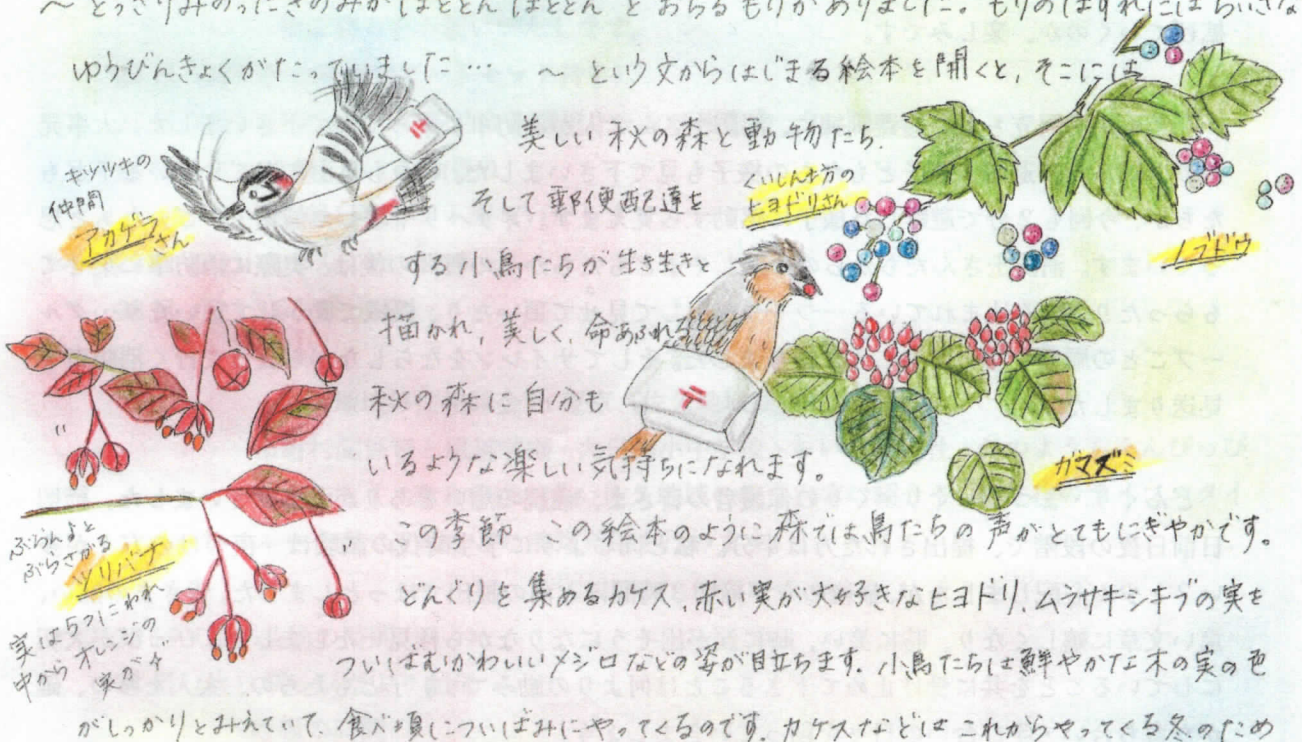 ～どっさりみのったきのみがほととん ほととん と おちる もりが ありました。もりのはずれには ちいさな
ゆうびんきょくがたっていました… ～ という文からはじまる絵本を開くと、そこには
美しい秋の森と動物たち.
キツツキの
仲間
アカゲラさん
そして郵便配達を
くいしん坊の
ヒヨドリさん
ノブドウ
する小鳥たちが生き生きと
描かれ, 美しく, 命あふれる
秋の森に自分も
いるような楽しい気持ちになれます。
ガマズミ
ぶらんと
ぶらさがる
ツリバナ
実は5つにわれ
中からオレンジの
実が
この季節 この絵本のように森では鳥たちの声がとてもにぎやかです。
どんぐりを集めるカケス, 赤い実が大好きなヒヨドリ, ムラサキシキブの実を
ついばむかわいいメジロなどの姿が目立ちます. 小鳥たちは鮮やかな木の実の色
がしっかりとみえていて, 食べ頃についばみにやってくるのです. カケスなどは これからやってくる冬のため